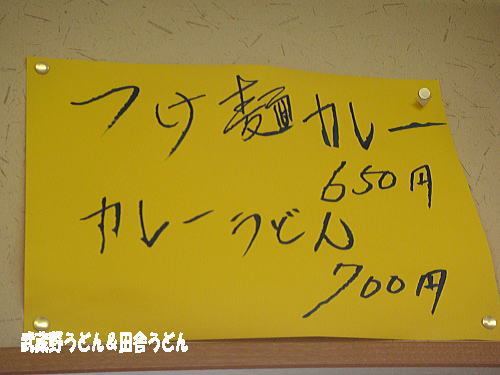 つけ麺カレー
650円
カレーうどん
700円
武蔵野うどん＆田舎うどん